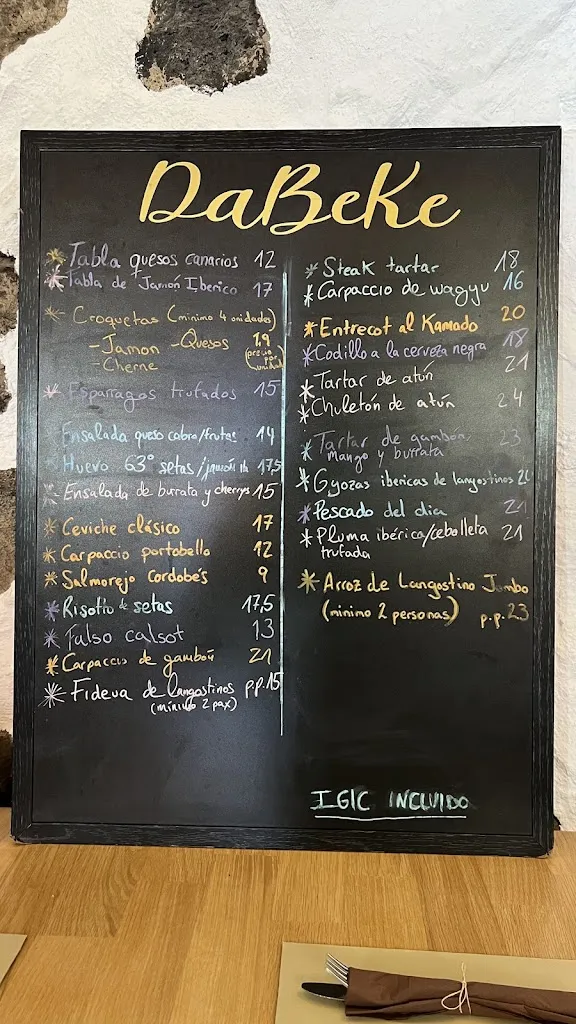 DaBeKe
* Tabla quesos canarios 12
* Tabla de Jamón Iberico 17
* Croquetas (minimo 4 unidades)
-Jamon -Quesos 1,9
-Cherne (precio por unidad)
* Esparragos trufados 15
Ensalada queso cabra/frutas 14
* Huevo 63° setas/jamón ib 17,5
* Ensalada de burata y cherrys 15
* Ceviche clásico 17
* Carpaccio portobello 12
* Salmorejo Cordobés 9
* Risotto de setas 17,5
* Falso calsot 13
* Carpaccio de gambón 21
* Fideua de langostinos p.p.15
(minimo 2 pax)
* Steak tartar 18
* Carpaccio de wagyu 16
* Entrecot al Kamado 20
* Codillo a la cerveza negra 18
* Tartar de atún 21
* Chuletón de atún 24
* Tartar de gambón 23
mango y burrata
* Gyozas ibericas de langostinos
* Pescado del dia 21
* Pluma ibérica/cebolleta 21
trufada
* Arroz de Langostino Jumbo
(minimo 2 personas) p.p.23
IGIC INCLUIDO